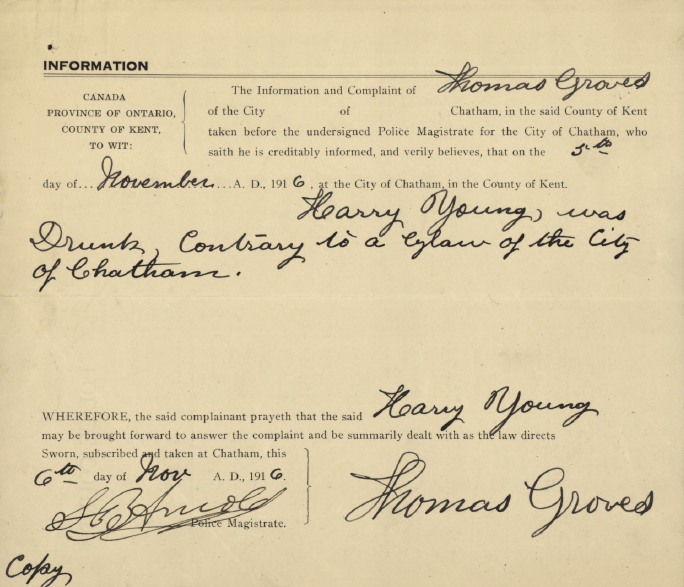 INFORMATION
The Information and Complaint of Thomas Groves
CANADA
PROVINCE OF ONTARIO,
COUNTY OF KENT,
TO WIT:
of the City of Chatham, in the said County of Kent
taken before the undersigned Police Magistrate for the City of Chatham, who
saith he is creditably informed, and verily believes, that on the 5th
day of... November ...A. D., 1916, at the City of Chatham, in the County of Kent.
Harry Young, was
Drunk, Contrary to a bylaw of the City
of Chatham.
WHEREFORE, the said complainant prayeth that the said Harry Young
may be brought forward to answer the complaint and be summarily dealt with as the law directs
Sworn, subscribed and taken at Chatham, this
6th day of Nov A. D., 1916.
Arnold
Police Magistrate.
Thomas Groves
Copy